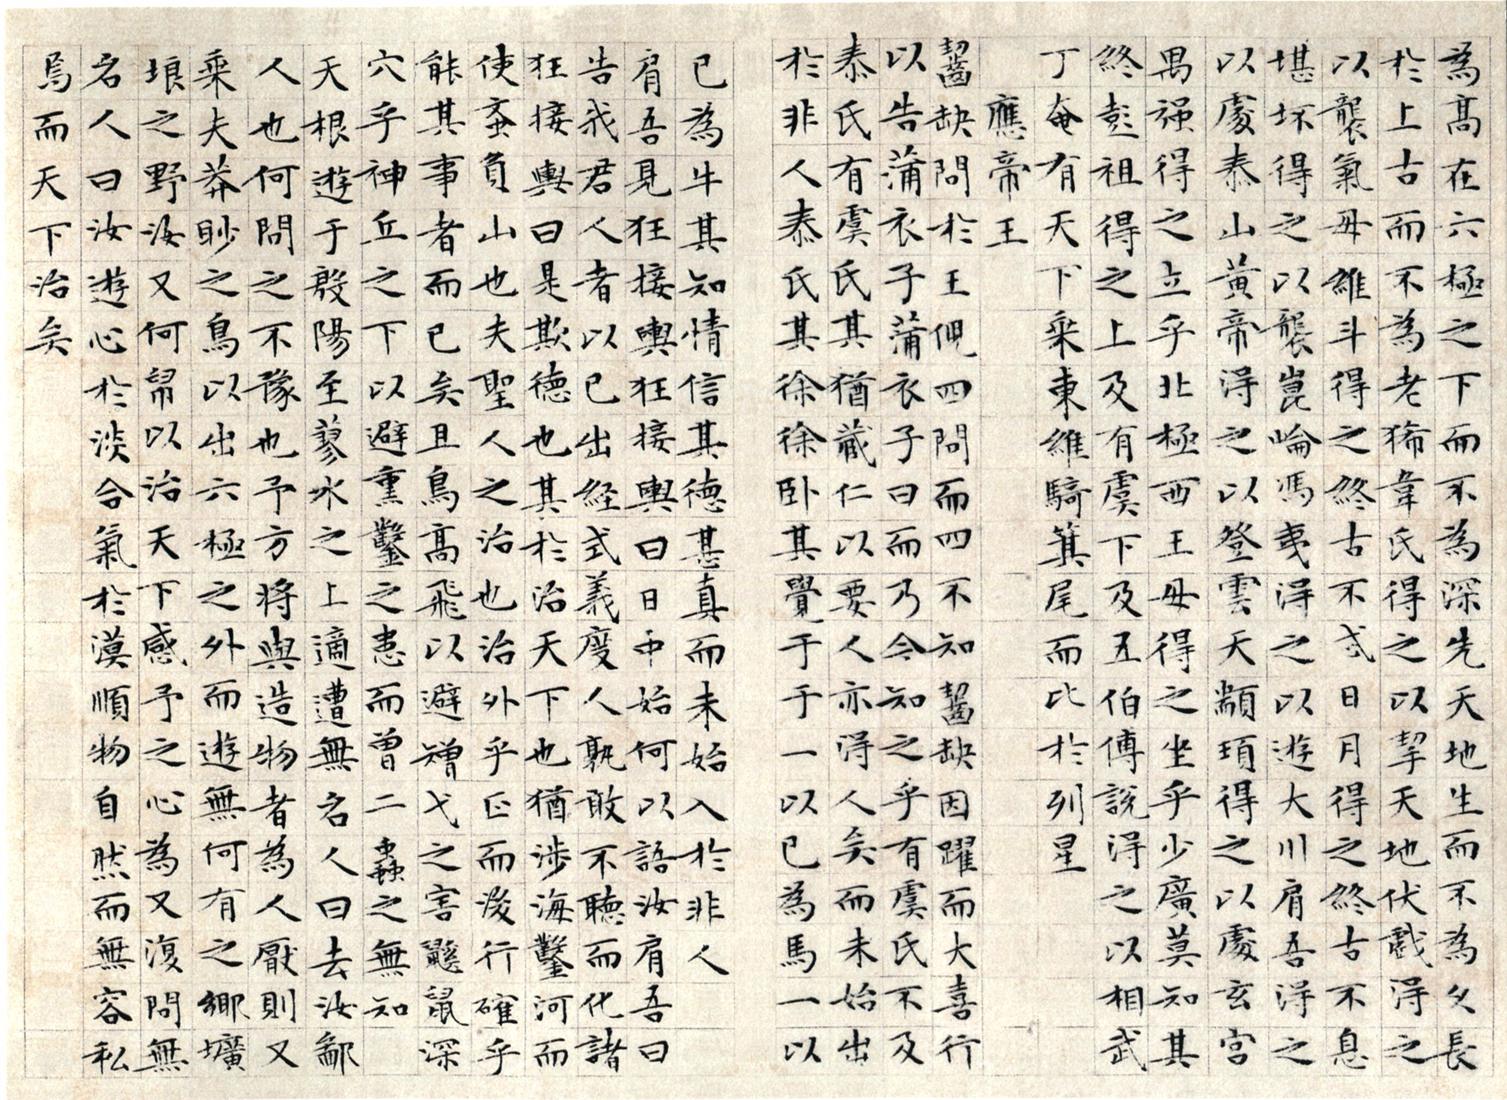 為高在六極之下而不為深先天地生而不為久長
於上古而不為老狶韋氏得之以挈天地伏戲得之
以襲氣母維斗得之終古不忒日月得之終古不息
堪坏得之以襲崑崘馮夷得之以遊大川肩吾得之
以處泰山黃帝得之以登雲天顓頊得之以處玄宮
禺强得之立乎北極西王母得之坐乎少廣莫知其
終彭祖得之上及有虞下及五伯傅說得之以相武
丁奄有天下乘東維騎箕尾而比於列星
應帝王
齧缺問於王倪四問而四不知齧缺因躍而大喜行
以告蒲衣子蒲衣子曰而乃今知之乎有虞氏不及
泰氏有虞氏其猶藏仁以要人亦得人矣而未始出
於非人泰氏其徐徐卧其覺于于一以己為馬一以
己為牛其知情信其德甚真而未始入於非人
肩吾見狂接輿狂接輿曰日中始何以語汝肩吾曰
告我君人者以己出經式義度人孰敢不聽而化諸
狂接輿曰是欺德也其於治天下也猶涉海鑿河而
使蚉負山也夫聖人之治也治外乎正而後行確乎
能其事者而已矣且鳥高飛以避矰弋之害鼷鼠深
穴乎神丘之下以避熏鑿之患而曾二蟲之無知
天根遊于殷陽至蓼水之上適遭無名人曰去汝鄙
人也何問之不豫也予方將與造物者為人厭則又
乘夫莽眇之鳥以出六極之外而遊無何有之鄉壙
埌之野汝又何帠以治天下感予之心為又復問無
名人曰汝遊心於淡合氣於漠順物自然而無容私
焉而天下治矣